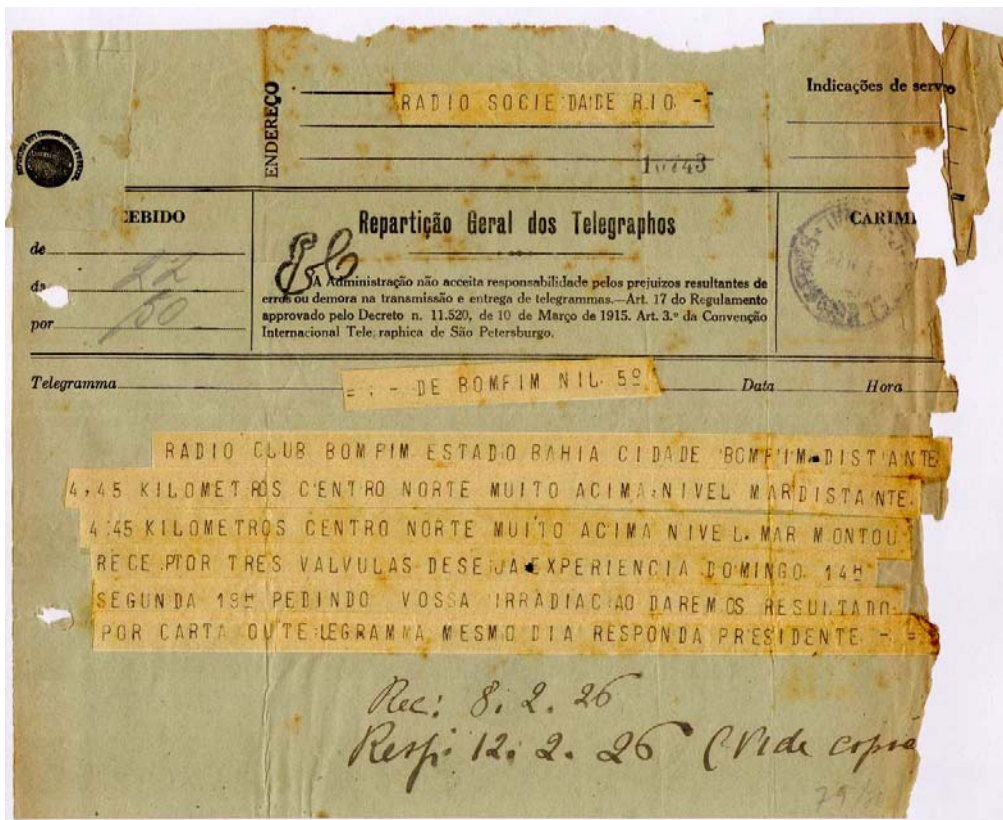 ENDEREÇO
RADIO SOCIEDADE RIO -
Indicações de serv
EBIDO
Repartição Geral dos Telegraphos
CARIM
de
A Administração não acceita responsabilidade pelos prejuizos resultantes de
erros ou demora na transmissão e entrega de telegrammas.—Art. 17 do Regulamento
approvado pelo Decreto n. 11.520, de 10 de Março de 1915. Art. 3.º da Convenção
Internacional Tele raphica de São Petersburgo.
por
Telegramma
= : - DE BOMFIM NIL 59
Data
Hora
RADIO CLUB BOMFIM ESTADO BAHIA CIDADE BOMFIM DISTANTE
4,45 KILOMETROS CENTRO NORTE MUITO ACIMA NIVEL MARDISTANTE
4.45 KILOMETROS CENTRO NORTE MUITO ACIMA NIVEL MAR MONTOU
RECEPTOR TRES VALVULAS DESEJA EXPERIENCIA DOMINGO 14H
SEGUNDA 19H PEDINDO VOSSA IRRADIACAO DAREMOS RESULTADO
POR CARTA OUTELEGRAMMA MESMO DIA RESPONDA PRESIDENTE - =
Rec: 8. 2. 26
Resp: 12. 2. 26 (Vide copia